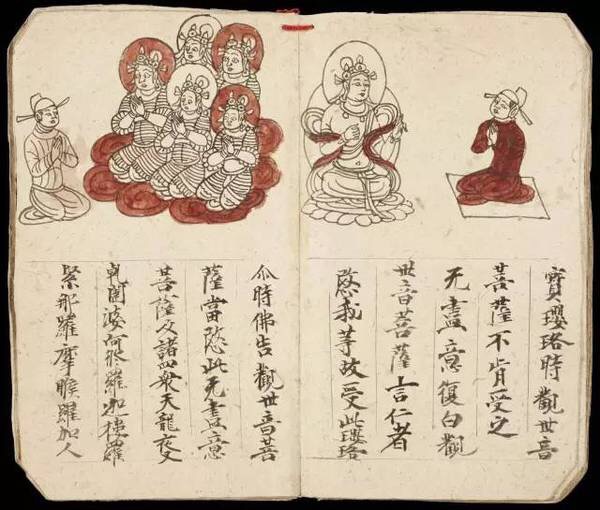 寶瓔珞時觀世音
菩薩不肯受之
无盡意復白觀
世音菩薩言仁者
愍我等故受此瓔珞
尒時佛告觀世音菩
薩當愍此无盡意
菩薩及諸四衆天龍夜叉
乹闥婆阿脩羅迦樓羅
緊那羅摩睺羅伽人